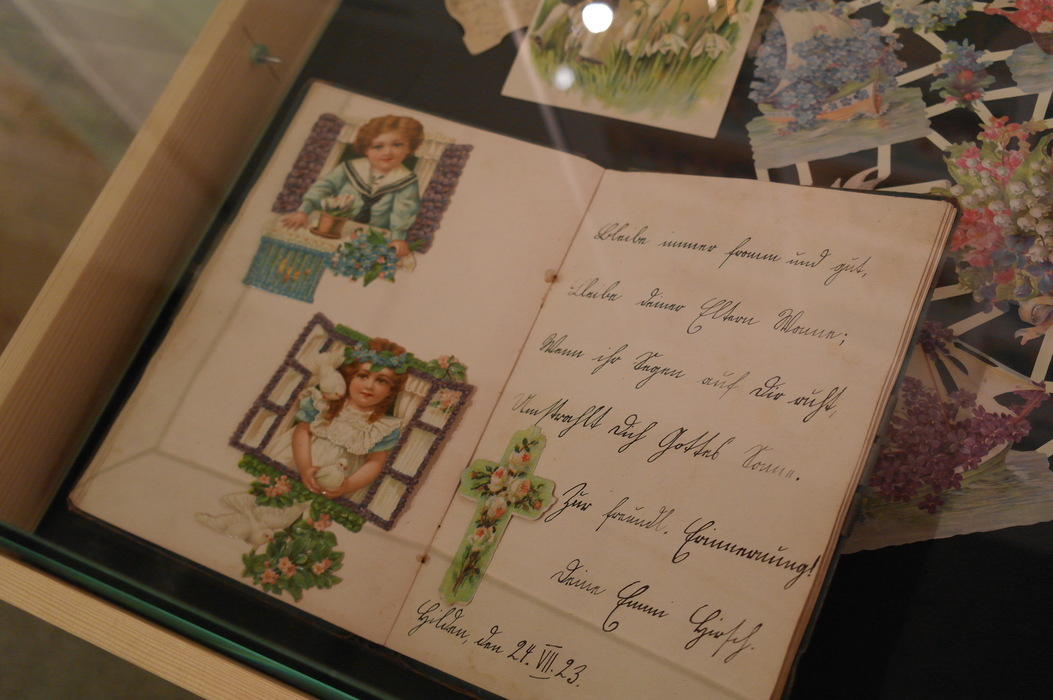 Bleibe immer fromm und gut,
Bleibe deiner Eltern Wonne;
Wenn ihr Segen auf dir ruht,
Umstrahlt dich Gottes Sonne.
Zur freundl. Erinnerung!
Deine Emmi Hirsch.
Hilden, den 24. VII. 23.